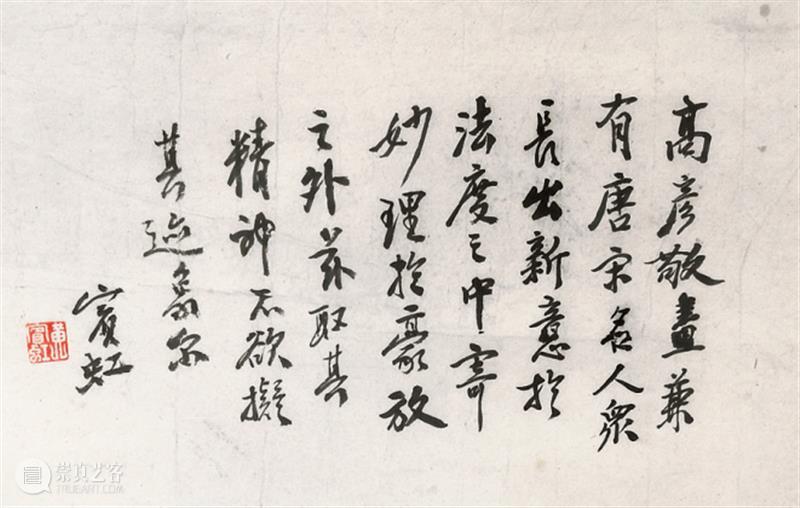 高彦敬畫兼
有唐宋名人衆
長出新意於
法度之中寄
妙理於豪放
之外兹取其
精神不欲擬
其迹象尔
賓虹
黄賓虹
崇真艺客
TRUEART.COM